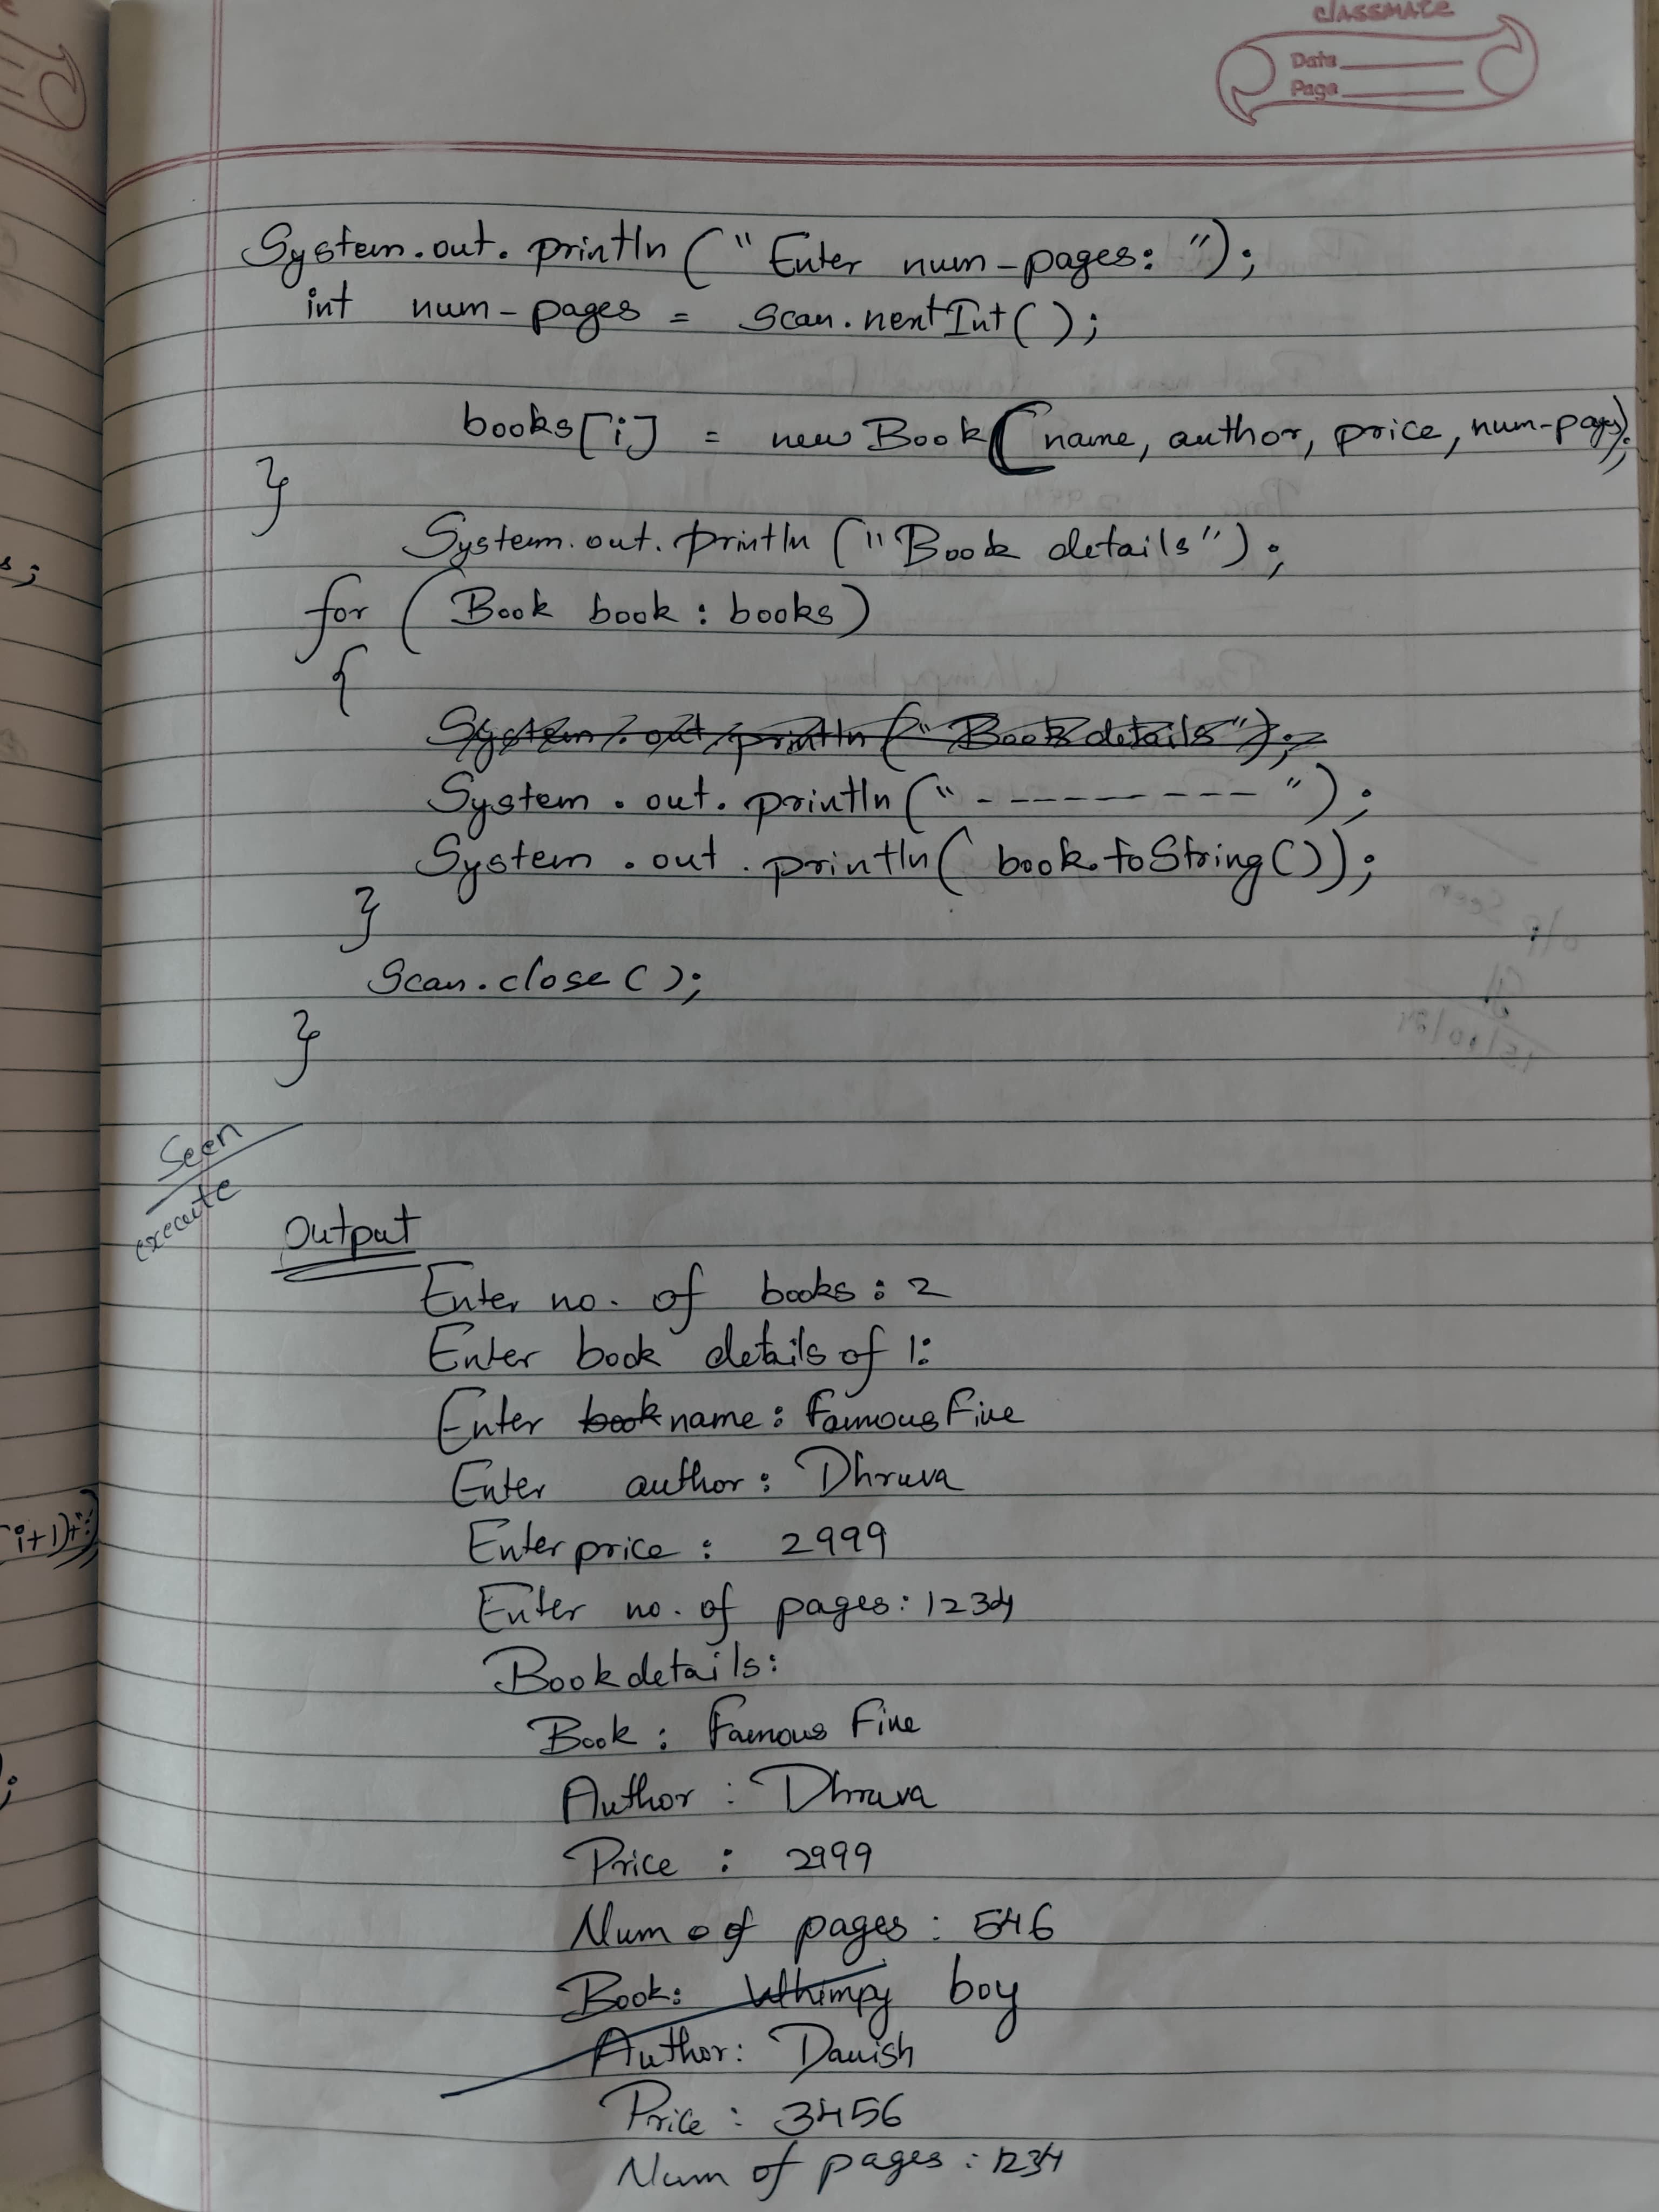 classmate
Date
Page
System.out.println("Enter num-pages: ");
int num-pages = Scan.nextInt();
books[i] = new Book(name, author, price, num-pages);
}
System.out.println("Book details");
for (Book book : books)
{
System.out.println("Book details");
System.out.println("- - - - - - - - -");
System.out.println(book.toString());
}
Scan.close();
}
Seen
execute
Output
Enter no. of books : 2
Enter book details of 1:
Enter book name : Famous Five
Enter author : Dhruva
Enter price : 2999
Enter no. of pages : 1234
Book details:
Book : Famous Five
Author : Dhruva
Price : 2999
Num of pages : 546
Book: Whimpy boy
Author: Danish
Price : 3456
Num of pages : 1234